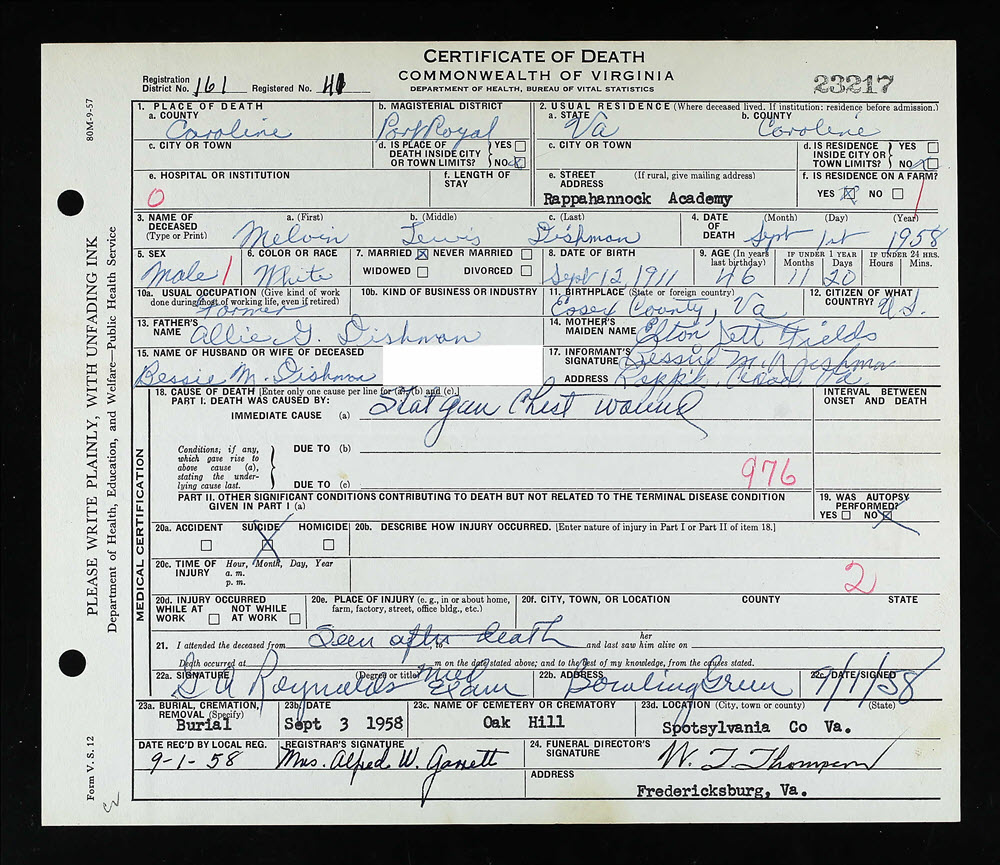 CERTIFICATE OF DEATH
COMMONWEALTH OF VIRGINIA
DEPARTMENT OF HEALTH, BUREAU OF VITAL STATISTICS
Registration District No. 161 Registered No.
23217
80M-9-57
1. PLACE OF DEATH
a. COUNTY
Caroline
b. MAGISTERIAL DISTRICT
Port Royal
2. USUAL RESIDENCE (Where deceased lived. If institution: residence before admission.)
a. STATE
Va
b. COUNTY
Caroline
c. CITY OR TOWN
d. IS PLACE OF DEATH INSIDE CITY OR TOWN LIMITS? YES NO
c. CITY OR TOWN
d. IS RESIDENCE INSIDE CITY OR TOWN LIMITS? YES NO
e. HOSPITAL OR INSTITUTION
0
f. LENGTH OF STAY
e. STREET ADDRESS (If rural, give mailing address)
Rappahannock Academy
f. IS RESIDENCE ON A FARM?
YES NO
3. NAME OF DECEASED (Type or Print)
a. (First) b. (Middle) c. (Last)
Melvin Lewis Dishman
4. DATE OF DEATH (Month) (Day) (Year)
Sept 1st 1958
5. SEX
Male
6. COLOR OR RACE
White
7. MARRIED NEVER MARRIED
WIDOWED DIVORCED
8. DATE OF BIRTH
Sept 12, 1911
9. AGE (In years last birthday)
46
IF UNDER 1 YEAR
Months Days
11 20
IF UNDER 24 HRS.
Hours Mins.
10a. USUAL OCCUPATION (Give kind of work done during most of working life, even if retired)
Farmer
10b. KIND OF BUSINESS OR INDUSTRY
11. BIRTHPLACE (State or foreign country)
Essex County, Va
12. CITIZEN OF WHAT COUNTRY?
U.S.
13. FATHER'S NAME
Allie G. Dishman
14. MOTHER'S MAIDEN NAME
Fields
15. NAME OF HUSBAND OR WIFE OF DECEASED
Bessie M. Dishman
17. INFORMANT'S SIGNATURE
Bessie M. Dishman
ADDRESS Va.
18. CAUSE OF DEATH [Enter only one cause per line for (a), (b) and (c).]
PART I. DEATH WAS CAUSED BY:
IMMEDIATE CAUSE (a) chest wound
INTERVAL BETWEEN ONSET AND DEATH
Conditions; if any, which gave rise to above cause (a), stating the underlying cause last.
DUE TO (b)
DUE TO (c)
976
PART II. OTHER SIGNIFICANT CONDITIONS CONTRIBUTING TO DEATH BUT NOT RELATED TO THE TERMINAL DISEASE CONDITION GIVEN IN PART I (a)
19. WAS AUTOPSY PERFORMED?
YES NO
20a. ACCIDENT SUICIDE HOMICIDE
20b. DESCRIBE HOW INJURY OCCURRED. [Enter nature of injury in Part I or Part II of item 18.]
20c. TIME OF INJURY Hour, Month, Day, Year
a. m.
p. m.
2
20d. INJURY OCCURRED
WHILE AT WORK NOT WHILE AT WORK
20e. PLACE OF INJURY (e. g., in or about home, farm, factory, street, office bldg., etc.)
20f. CITY, TOWN, OR LOCATION COUNTY STATE
21. I attended the deceased from Seen after death, to and last saw her him alive on
Death occurred at m on the date stated above; and to the best of my knowledge, from the causes stated.
22a. SIGNATURE (Degree or title)
Reynolds Med Exam
22b. ADDRESS
Bowling Green
22c. DATE SIGNED
9/1/58
23a. BURIAL, CREMATION, REMOVAL (Specify)
Burial
23b. DATE
Sept 3 1958
23c. NAME OF CEMETERY OR CREMATORY
Oak Hill
23d. LOCATION (City, town or county) (State)
Spotsylvania Co Va.
DATE REC'D BY LOCAL REG.
9-1-58
REGISTRAR'S SIGNATURE
Mrs. Alfred W. Garrett
24. FUNERAL DIRECTOR'S SIGNATURE
W. T. Thompson
ADDRESS
Fredericksburg, Va.
MEDICAL CERTIFICATION
PLEASE WRITE PLAINLY, WITH UNFADING INK
Department of Health, Education, and Welfare—Public Health Service
Form V. S. 12